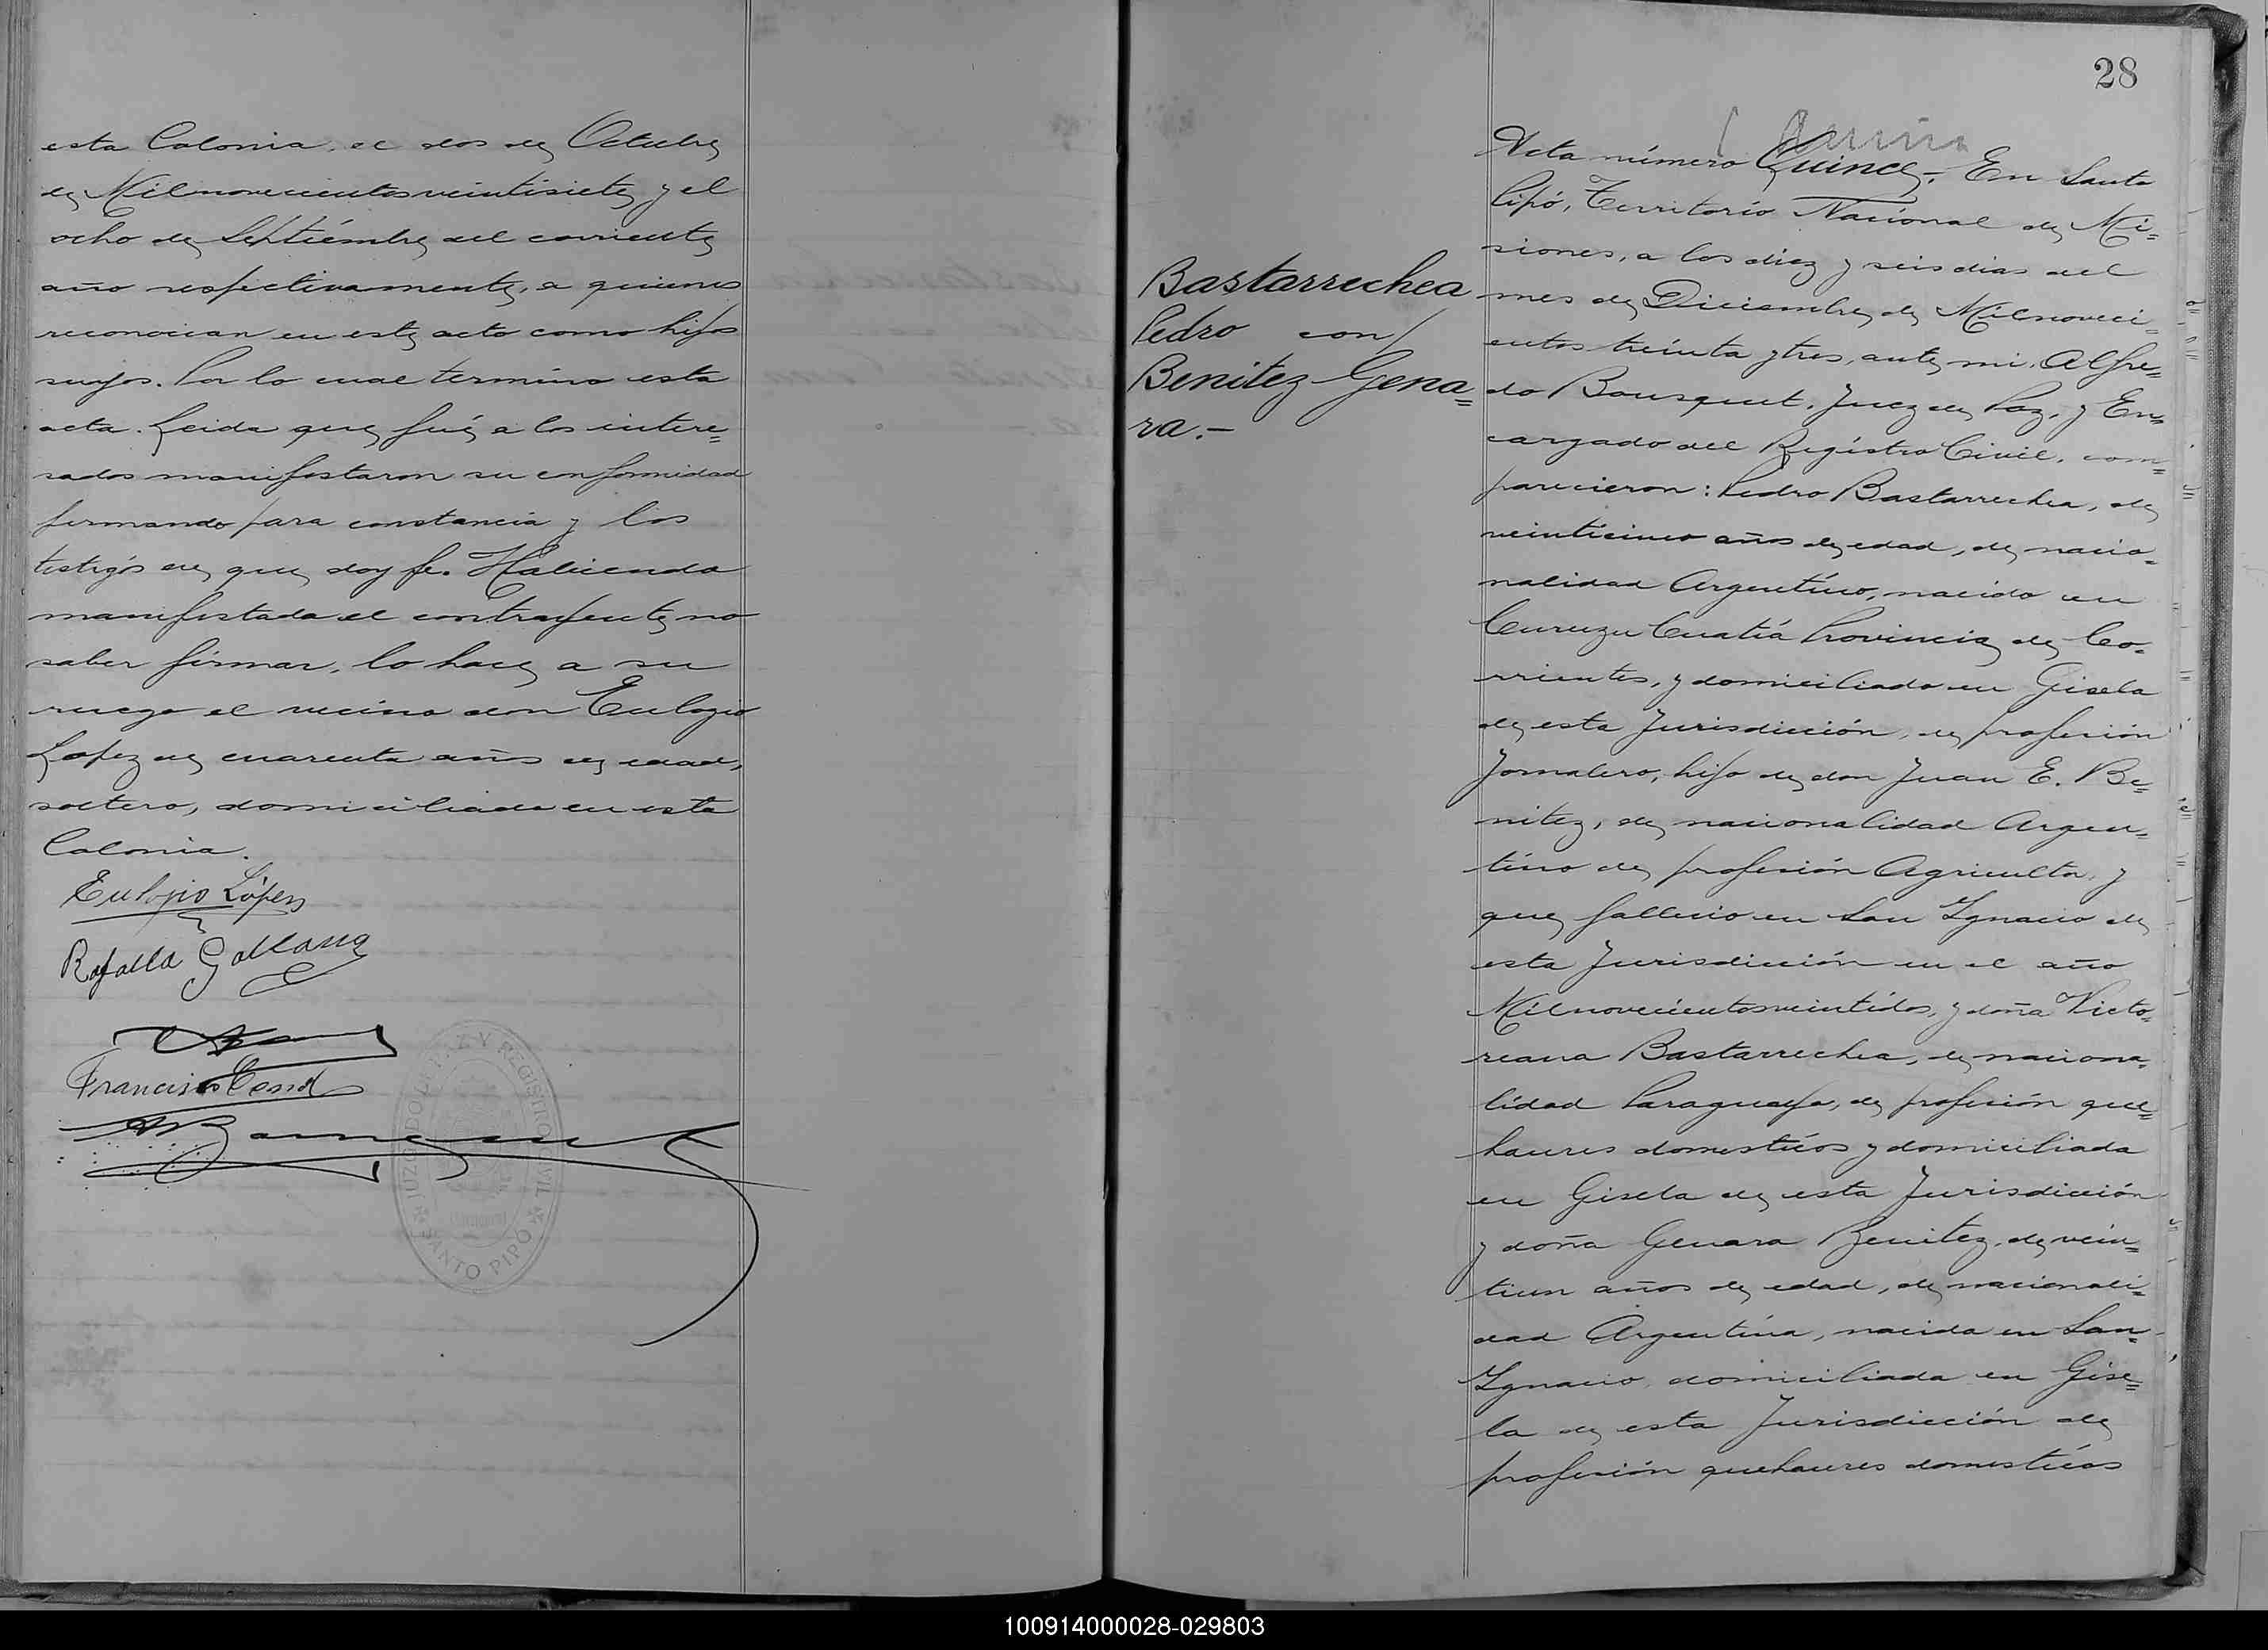 esta Colonia, el dos de Octubre
de Milnovecientosveintisiete y el
ocho de Septiémbre del corriente
año respectivamente, a quienes
reconocian en este acto como hijos
suyos. Por lo cual termino esta
acta. Leida que fué a los intere=
sados manifestaron su conformidad
firmando para constancia y los
testigós de que doy fe. Habiendo
manifestada el contrayente no
saber firmar, lo hace a su
ruego el vecino don Eulogio
Lopez de cuarenta años de edad,
soltero, domiciliado en esta
Colonia.
Eulogio López
Rafaela Gallana
Francisco
ABousquet
JUZGADO DE PAZ Y REGISTRO CIVIL
SANTO PIPÓ
28
Bastarrechea
Pedro con/
Benitez Gena=
ra.-
Acta número Quince-. En Santo
Pipó, Territorio Nacional de Mi=
siones, a los diez y seis dias del
mes de Diciembre de Milnoveci=
entos treinta y tres, ante mi, Alfre=
do Bousquet, Juez de Paz, y En=
cargado del Registro Civil, com=
parecieron: Pedro Bastarrechea, de
veinticinco años de edad, de nacio=
nalidad Argentino, nacido en
Curuzu Cuatiá Provincia de Co=
rrientes, y domiciliado en Gisela
de esta Jurisdicción, de profesión
Jornalero, hijo de don Juan E. Be=
nitez, de nacionalidad Argen=
tino de profesión Agricultor, y
que fallecio en San Ignacio de
esta Jurisdicción en el año
Milnovecientosveintidos, y doña Victo=
reana Bastarrechea, de naciona=
lidad Paraguaya, de profesión que=
haceres domesticos y domiciliada
en Gisela de esta Jurisdicción
y doña Genara Benitez, de vein=
tiun años de edad, de nacionali=
dad Argentina, nacida en San=
Ignacio, domiciliada en Gise=
la de esta Jurisdicción de
profesión quehaceres domesticos
100914000028-029803